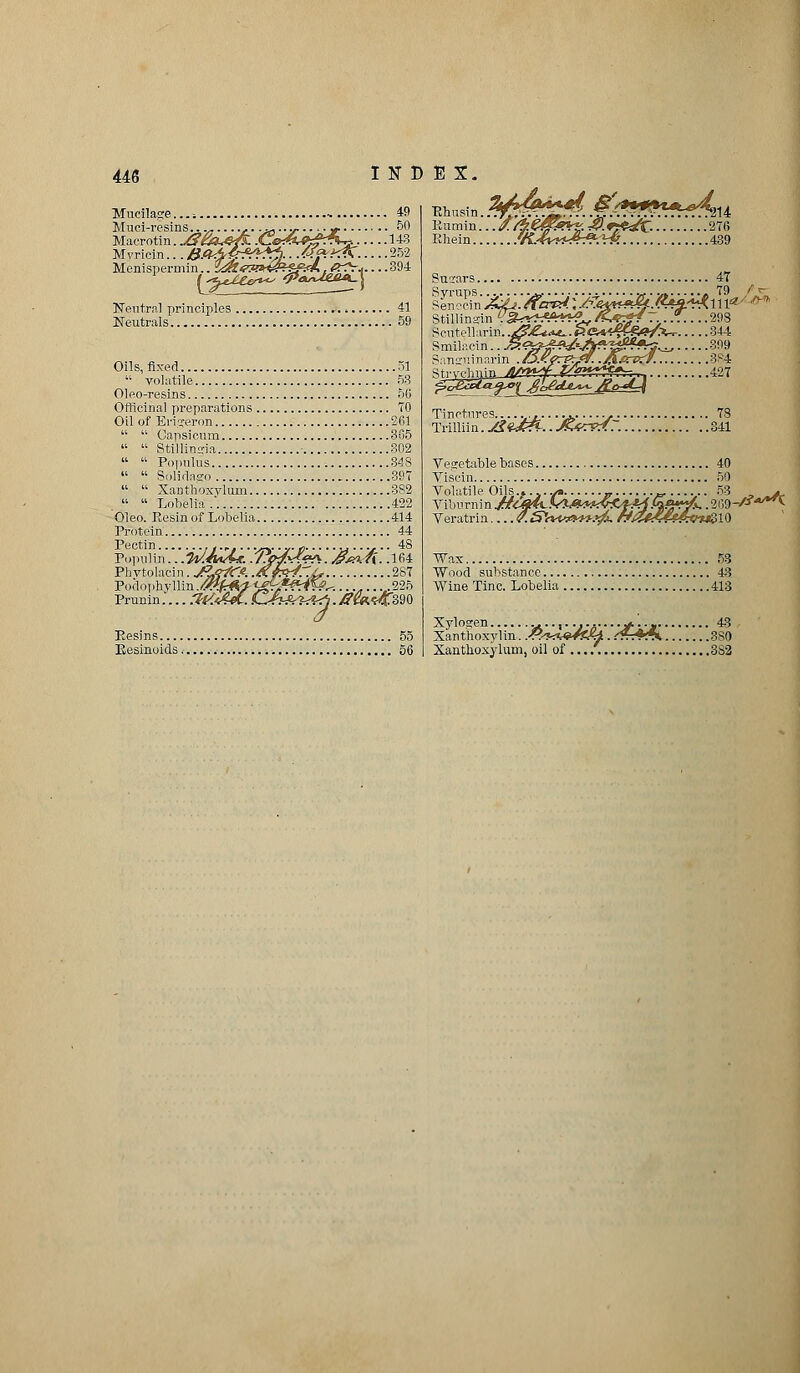 446 INDEX.
Mucilage 49
Muci-resins 50
Macrotin Black Cohosh 143
Myricin Bayberry Bark 252
Menispermin 394
(Yellow Parilla)
Neutral principles 41
Neutrals 59
Oils, fixed 51
" volatile 53
Oleo-resins 56
Officinal preparations 70
Oil of Erigeron 261
" " Capsicum 365
" " Stillingia 302
" " Populus 348
" " Solidago 397
" " Xanthoxylum 382
" " Lobelia 422
Oleo. Resin of Lobelia 414
Protein 44
Pectin 48
Populin White Poplar Bark 164
Phytolacin Poke Root 287
Podophyllin 225
Prunin Wild Cherry Bark 390
Resins 55
Resinoids 56
Rhusin 214
Rumin Yellow Dock 276
Rhein Rhubarb 439
Sugars 47
Syrups 79
Senecin Life Root 111
Stillingin Root 298
Scutellarin 344
Smilacin 399
Sanguinarin Blood Root 384
Strychnin 427
Tinctures 78
Trilliin Beth Root 341
Vegetable bases 40
Viscin 50
Volatile Oils 53
Viburnin High Cranberry Bark 269
Veratrin 310
Wax 53
Wood substance 43
Wine Tinc. Lobelia 413
Xylogen 43
Xanthoxylin Prickly Ash 380
Xanthoxylum, oil of 382